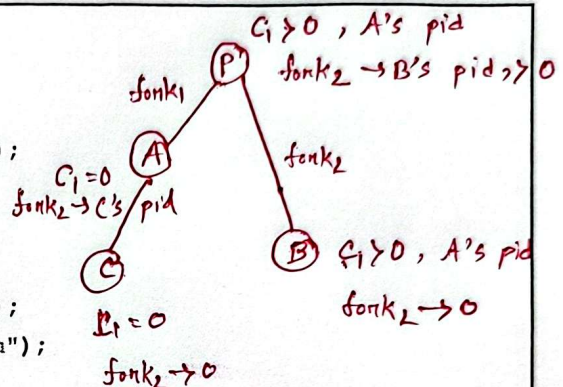 C₁>0 , A's pid
P
fork₂ → B's pid, >0
fork₁
);
A
fork₂
C₁=0
fork₂→C's pid
B
C₁>0, A's pid
C
fork₂→0
;
C₁ = 0
");
fork₂→0